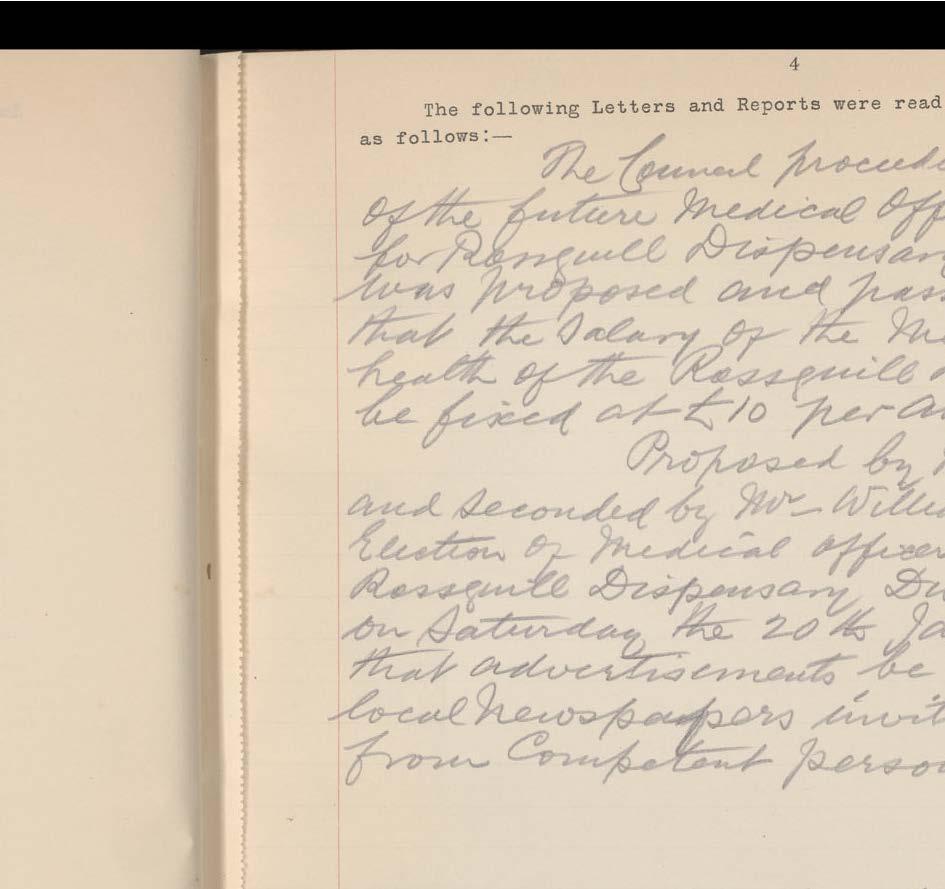 4
The following Letters and Reports were read
as follows:—
The Council proceede
of the future Medical Off
for Rossguill Dispensary
was proposed and pass
that the Salary of the Me
health of the Rossguill
be fixed at £10 per an
Proposed by
and seconded by Mr Willia
Election of Medical officer
Rossguill Dispensary Di
on Saturday the 20th Ja
that advertisements be
local Newspapers invit
from Competent person